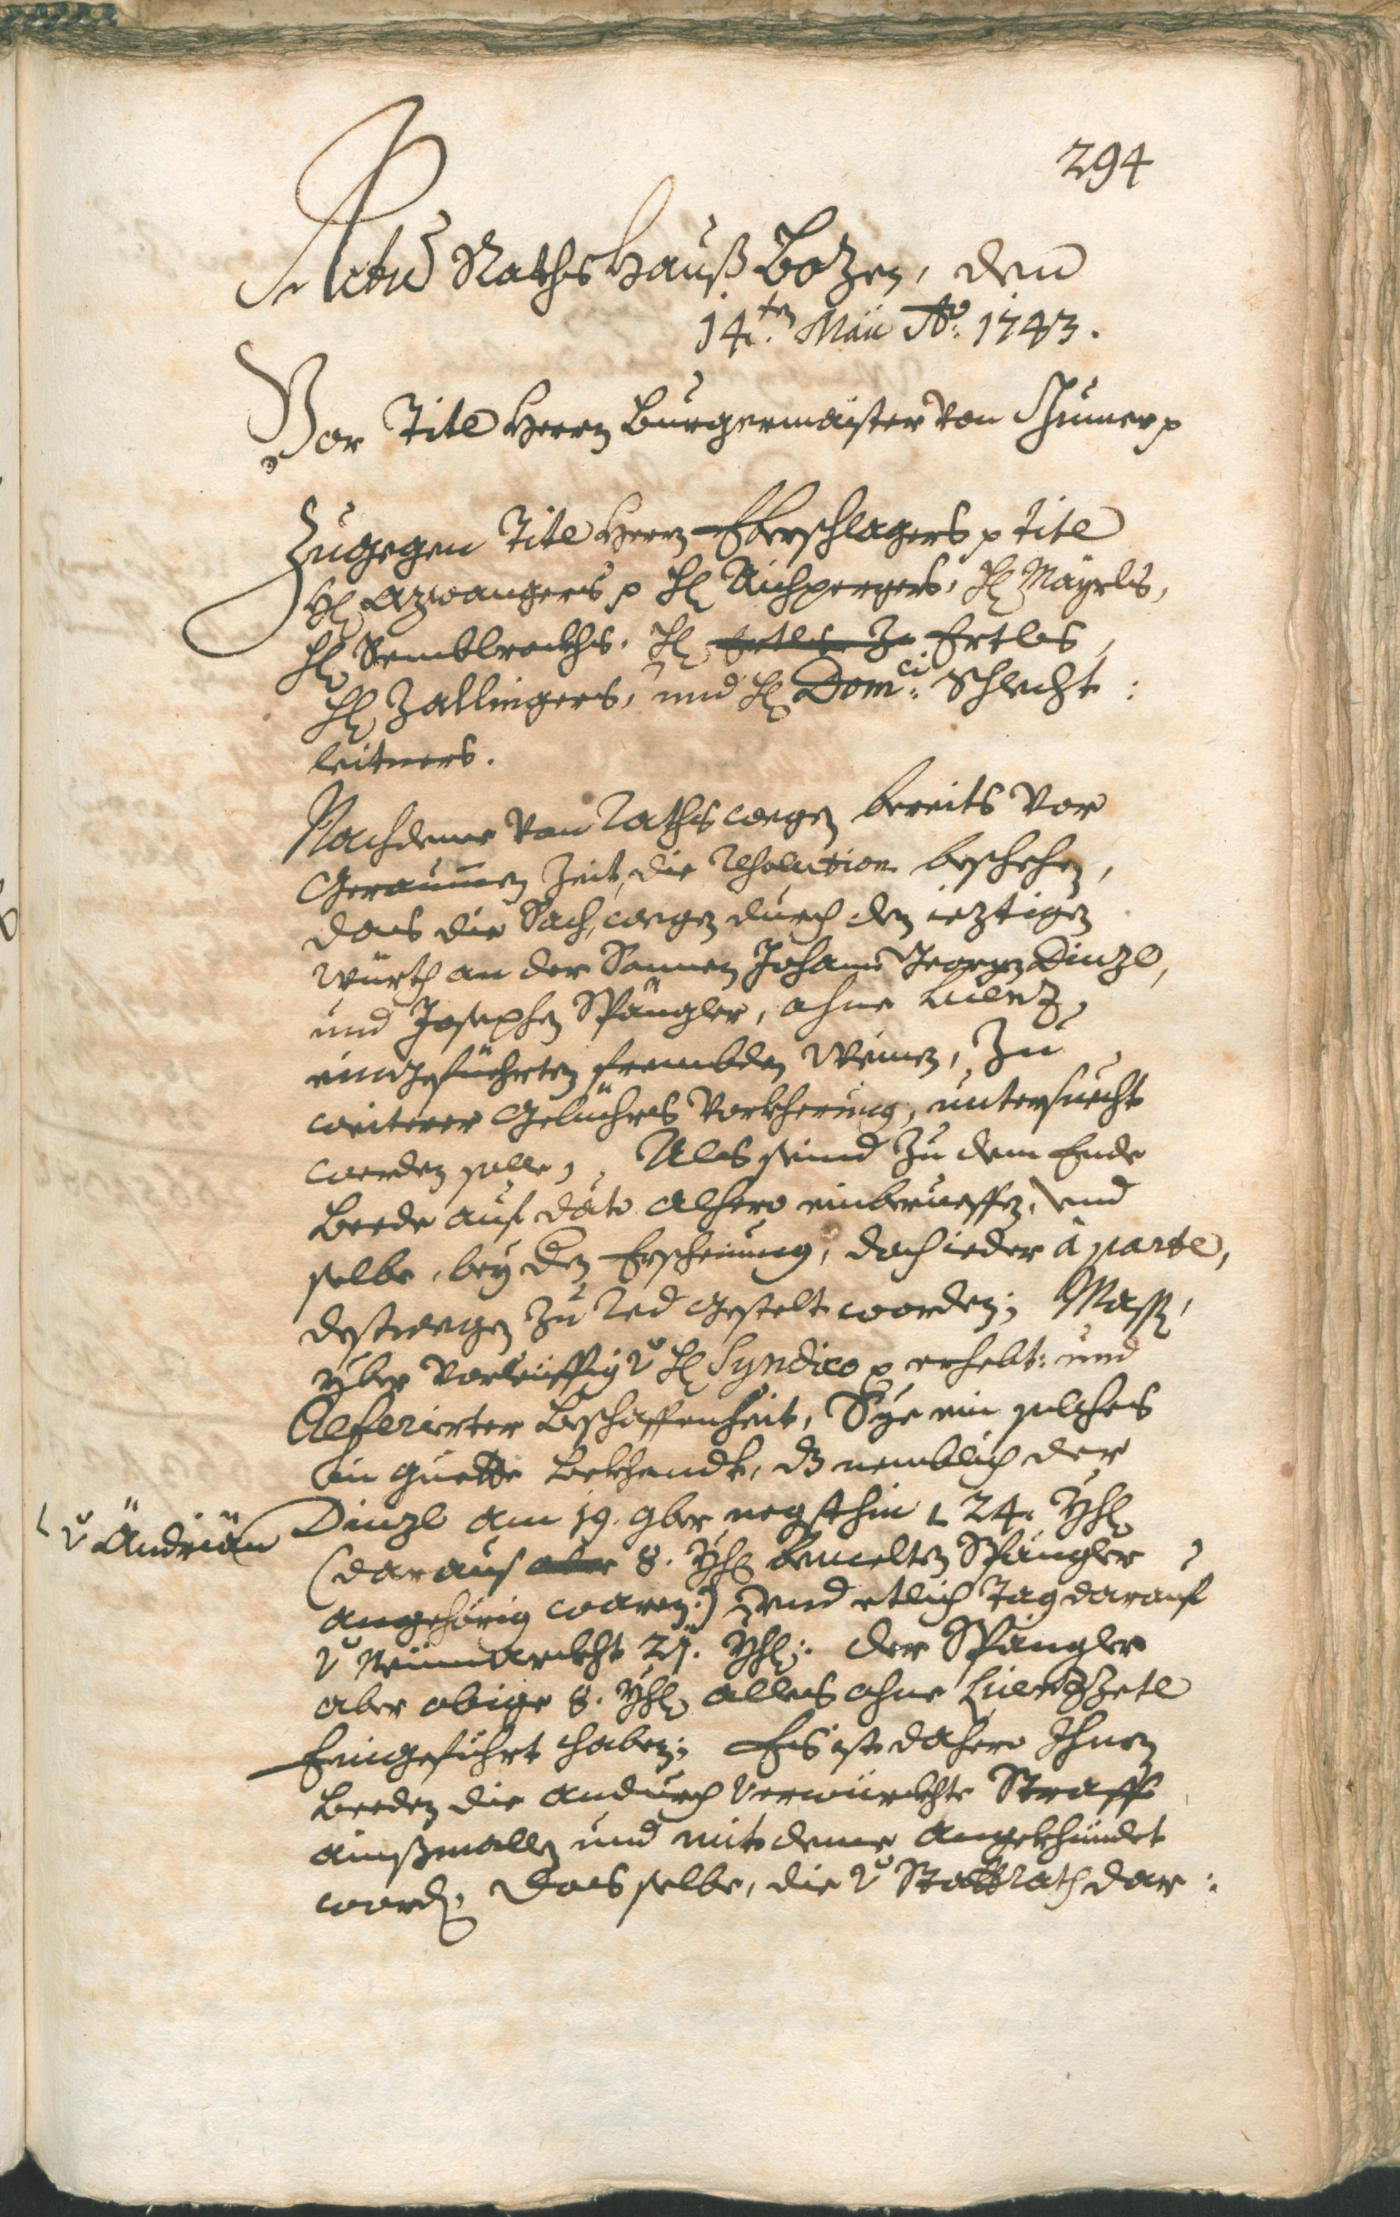 294
Actu Raths Hauß Bozen, den
14.ten Maii Ao. 1743.
Vor Titl Herrn Burgermaister von Shumer p
Zugegen Titl Herrn Eberschlagers p Titl
H: Azwangers p H: Aichpergers, H: Mayrls,
H: Semblrockhs, H: Ertles Zo Ertles,
H: Zallingers, und H: Dom:ci Schlecht:
leitners.
Nachdeme von Raths wegen bereits vor
Geraumen Zeit, die Resolution beschehen,
dass die Sach, wegen durch den ieztigen
Würth an der Sonnen Johann Georgen Dinzl,
und Josephen Spängler, ohne Licenz,
eingefüehrten frembden Weinen, Zu
weiterer Gebührs Vorkherung, untersucht
werden solle, Als seind Zu dem Ende
Beede auf dato alhero einberueffen, und
selbe, bey den Erscheinung, doch ieder à parte,
destwegen Zu Red gestelt worden; Massen,
yber vorleiffig v. H: Syndico p erhebt: und
Referirter Beschaffenheit, Sye ein solches
in guette bekhandt, dz nemblich der
Dinzl am 19. 9ber negsthin 24. Yhrn
v. Andrian
(daraus aber 8. Yhrn bemelten Spängler
angehörig waren:) und etlich Tag darauf
v. Neumarckht 21. Yhrn: der Spängler
aber obige 8. Yhrn alles ohne Licenzzetl
Eingeführt haben; Es ist dahero Ihnen
Beeden die andurch verwürckhte Straff
ainßmallen und mit deme angekhündet
worden, Dass selbe, die v. Stattrath dar: